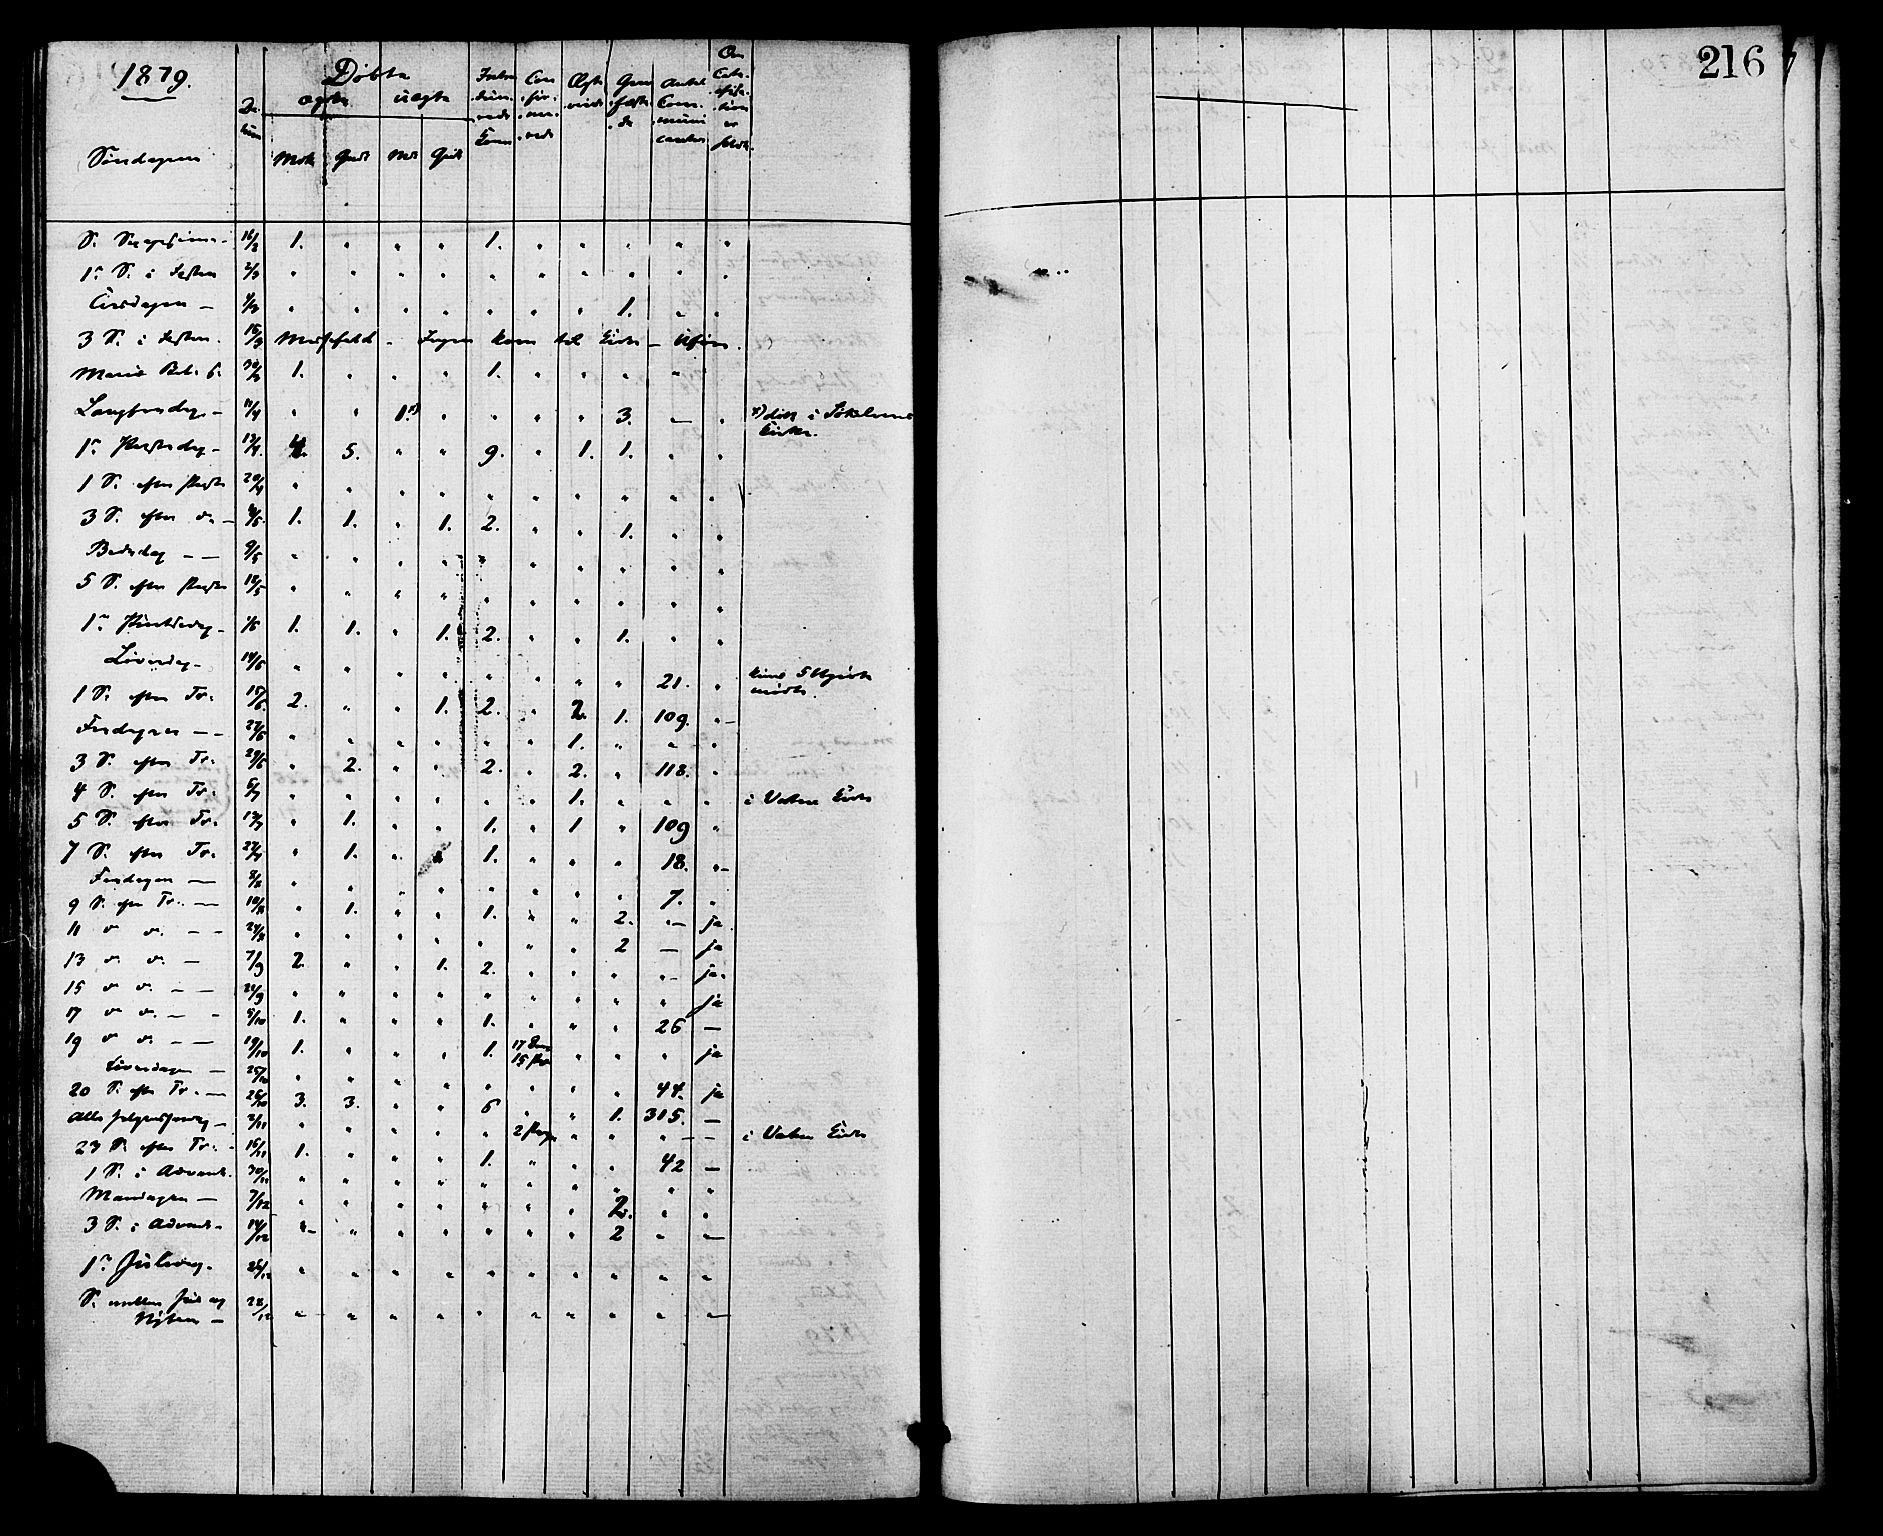 216
1879.
Søndagen
Da-
tum
Döbte
ægte uægte
Mdk. Qvdk. Mdk. Qvdk.
Con
fir-
me-
rede
Ægte
viede
Antal
Com-
muni
canter
Om
S. Sexagesima - 16/2 1. " " " 1. " " " " "
1ste S. i Fasten 2/3 " " " " " " " " " "
Tirsdagen - 4/3 " " " " " " " 1. " "
3 S. i Fasten. 16/3 Messefald - Ingen kom til Kirke - Uføre.
Mariæ Beb. D. 30/3 1. " " " 1. " " " "
Langfredag - 11/4 " " 1 x) " " " " 3. — " x) døbt i Sökelvens
Kirke.
1ste Paaskedag - 13/4 4. 5. " " 9. " 1. 1. " "
1 S. efter Paaske 20/4 " " " " " " " " " "
3 S. efter do - 4/5 1. 1. " 1. 2. " " 1. " "
Bededag - — 9/5 " " " " " " " " " "
5 S. efter Paaske 18/5 " " " " " " " " " "
1ste Pintsedag - 1/6 1. 1. " 1. 2. " " 1. " "
Löverdag - 14/6 " " " " " " " " 21. " kuns 5 Utgjorte
mødte.
1 S. efter Tr. 15/6 2. " " 1. 2. " 2. 1. 109. "
Fredagen - - 27/6 " " " " " " 1. " " "
3 S. efter Tr. 29/6 " 2. " " 2. " 2. " 118. "
4 S. efter Tr. 6/7 " " " " " " 1. " " " i Vatne Kirke
5 S. efter Tr. 13/7 " 1. " " 1. " 1 " 109 "
7 S. efter Tr. 27/7 " 1. " " 1. " " " 18. "
Fredagen — 8/8 " " " " " " " " 7. "
9 S. efter Tr. — 10/8 " 1. " " 1. " " 2. — ja
11 do do. - - 24/8 " " " " " " " 2 — ja
13 do do. - 7/9 2. " " 1. 2. " " " " ja.
15 do do. - - 21/9 " " " " " " " " " ja
17 do do. - - 5/10 1. " " " 1. " " " 26 —
19 do do. - - 19/10 1. " " " 1. 17 Dreng 15 Piger " " " ja
Löverdagen - 25/10 " " " " " " " " 44. ja
20 S. efter Tr. - 26/10 3. 3. " " 6 " " 1. 315. —
Alle Helgensdag - 2/11 " " " " " 2 Piger " " " — i Vatne Kirke
23 S. efter Tr. - 16/11 1. " " " 1. " " " 42 —
1 S. i Advent. 30/11 " " " " " " " " " "
Mandagen - 7/12 " " " " " " " 2. " "
3 S. i Advent. 14/12 " " " " " " " 2 " —
1ste Juledag. 25/12 " " " " " " " " " "
S. mellem Jul og
Nytaar - 28/12 " " " " " " " " " —